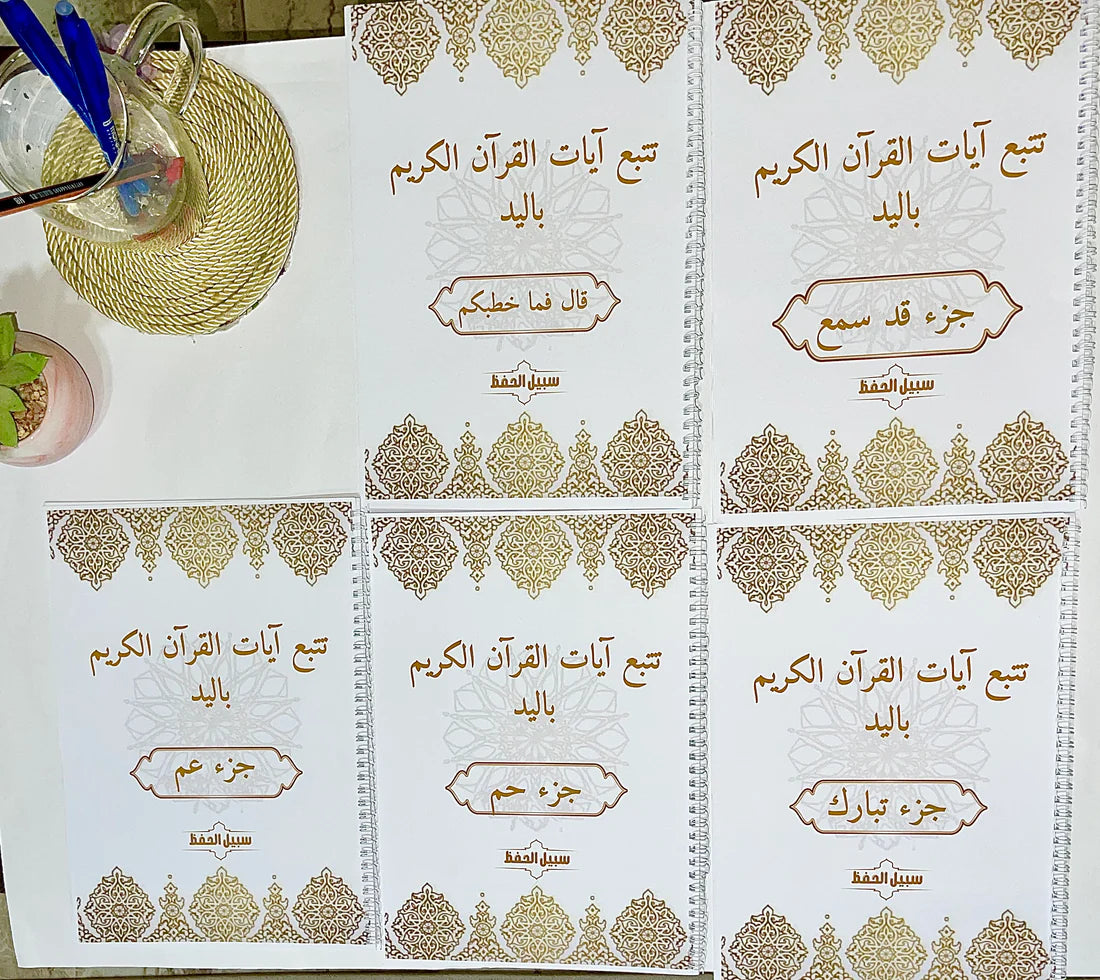 تتبع آيات القرآن الكريم
باليد
قال فما خطبكم
سبيل الحفظ
تتبع آيات القرآن الكريم
باليد
جزء قد سمع
سبيل الحفظ
تتبع آيات القرآن الكريم
باليد
جزء عم
سبيل الحفظ
تتبع آيات القرآن الكريم
باليد
جزء حم
سبيل الحفظ
تتبع آيات القرآن الكريم
باليد
جزء تبارك
سبيل الحفظ
HB